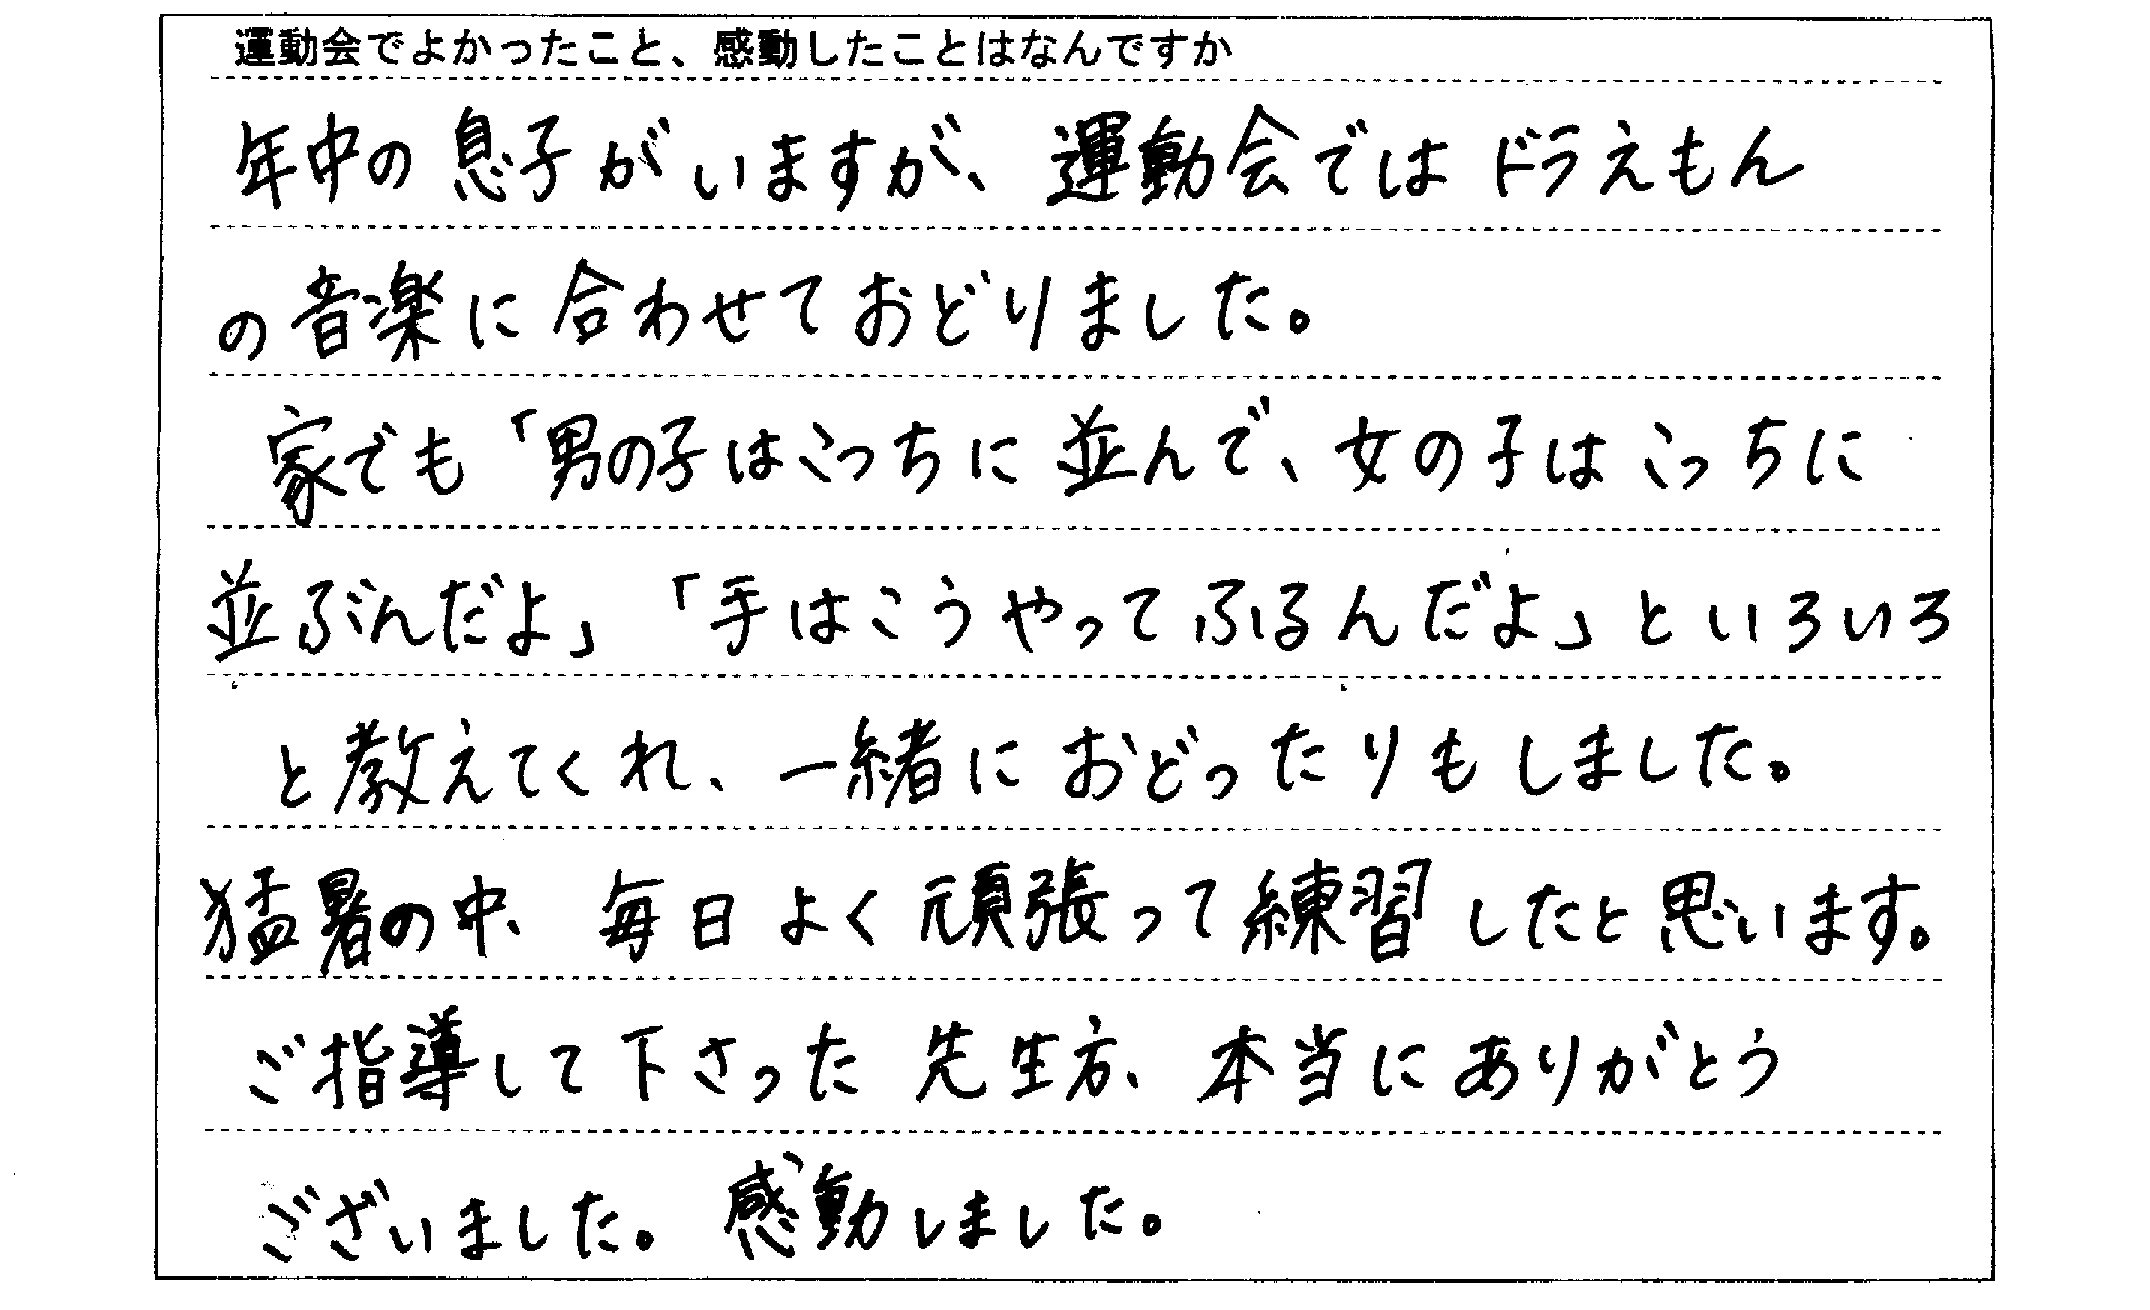 運動会でよかったこと、感動したことはなんですか
年中の息子がいますが、運動会ではドラえもん
の音楽に合わせておどりました。
家でも「男の子はこっちに並んで、女の子はこっちに
並ぶんだよ」「手はこうやってふるんだよ」といろいろ
と教えてくれ、一緒におどったりもしました。
猛暑の中、毎日よく頑張って練習したと思います。
ご指導して下さった先生方、本当にありがとう
ございました。感動しました。